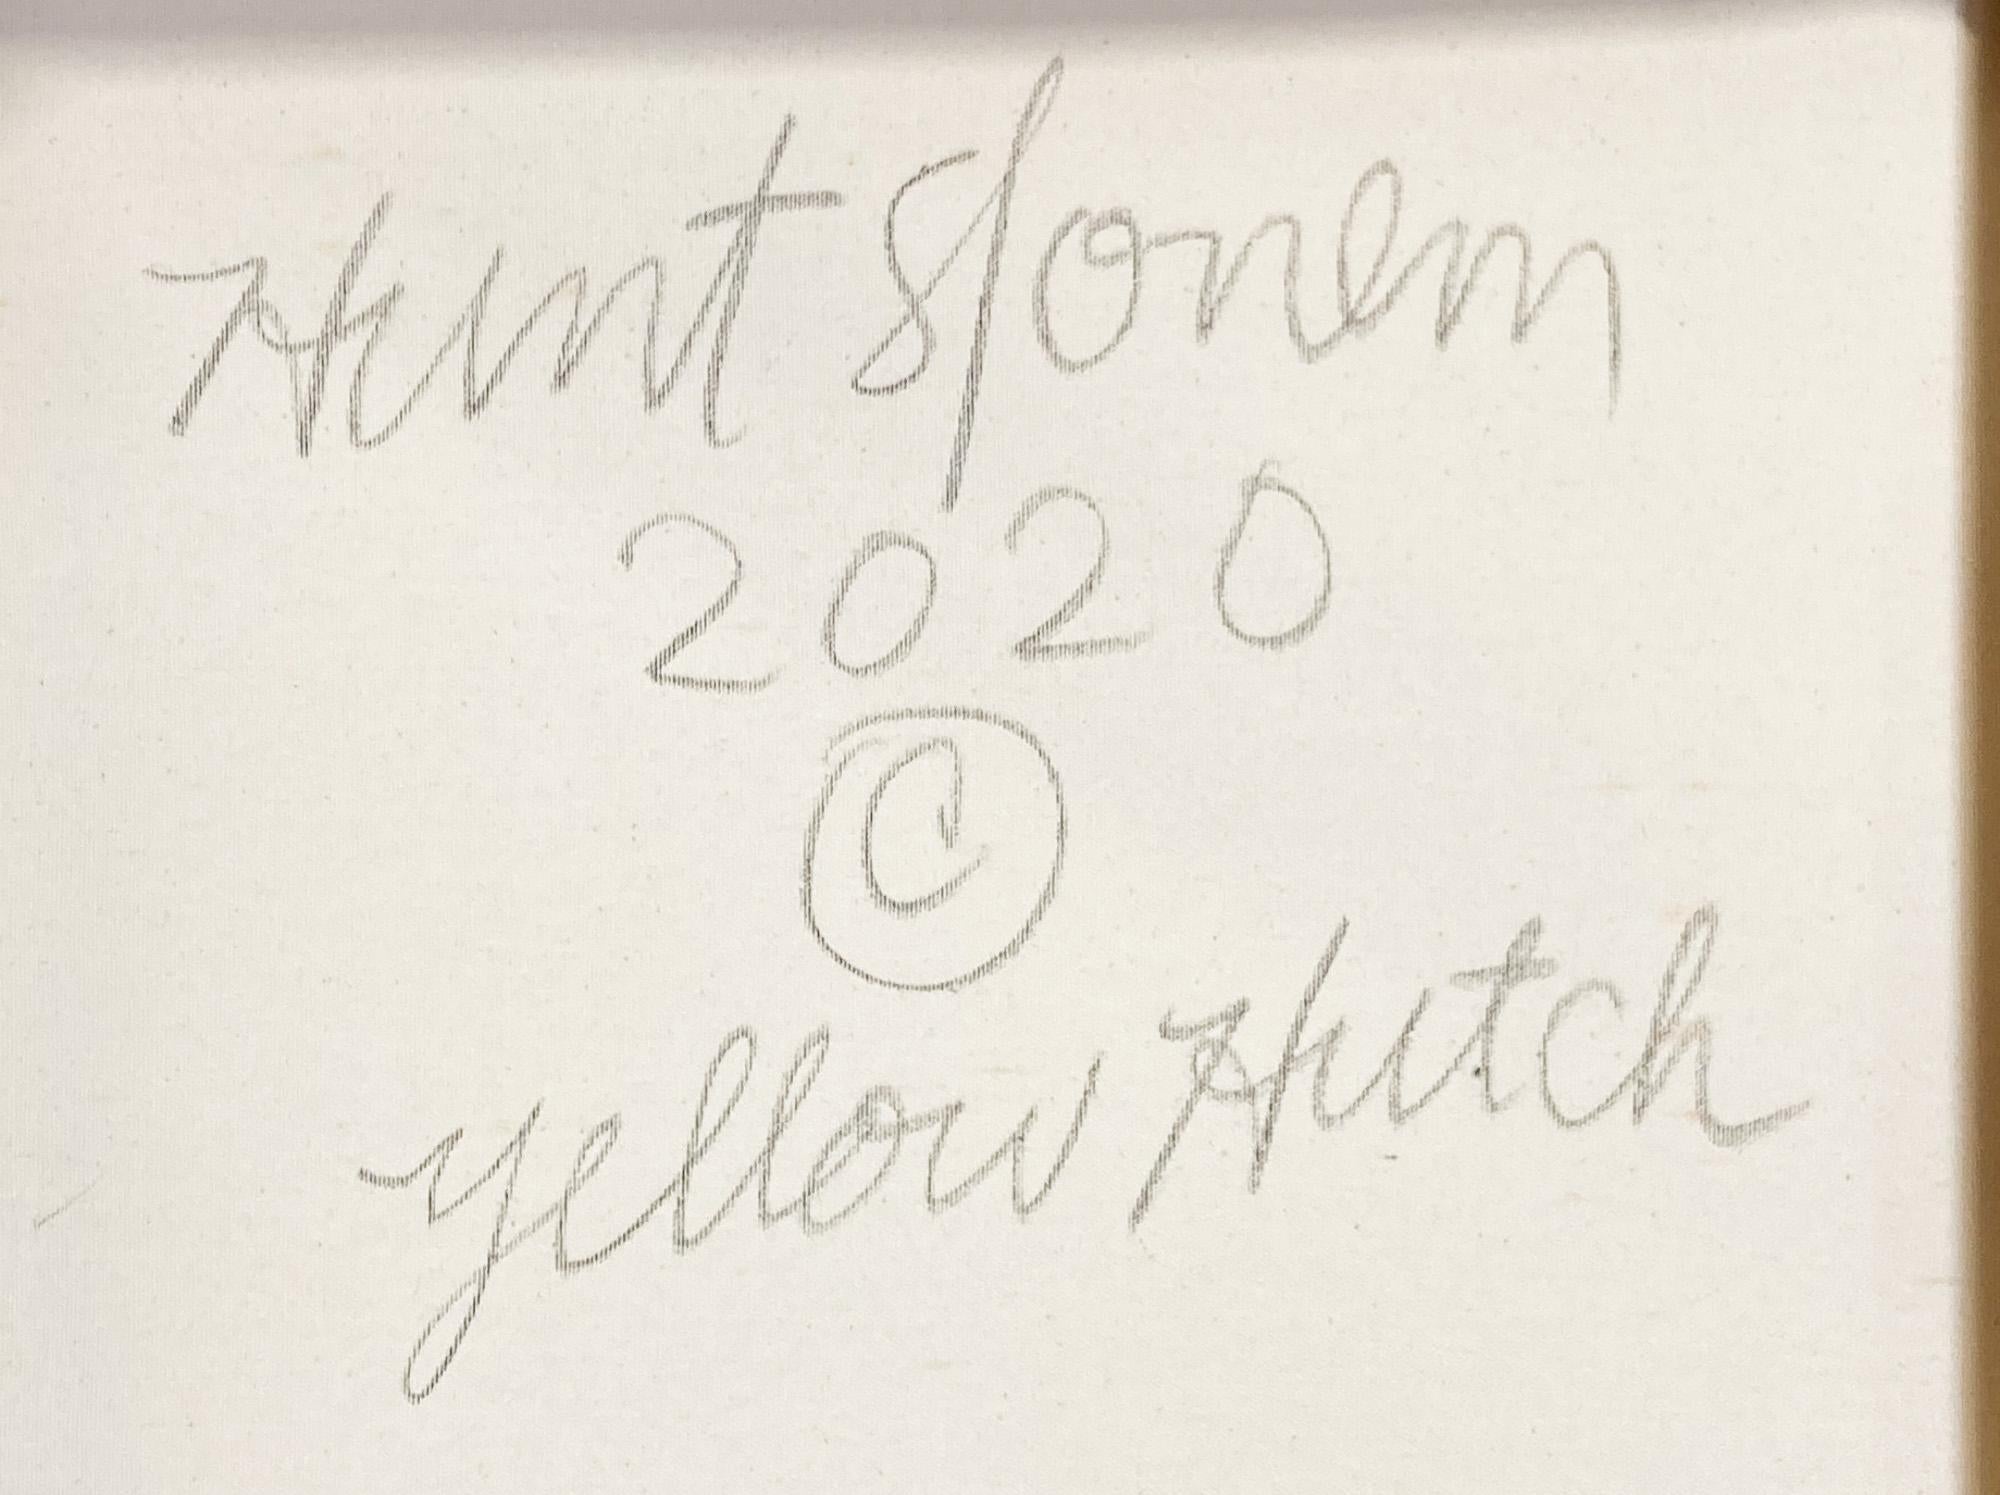 Hunt Slonem
2020
©
Yellow Hutch